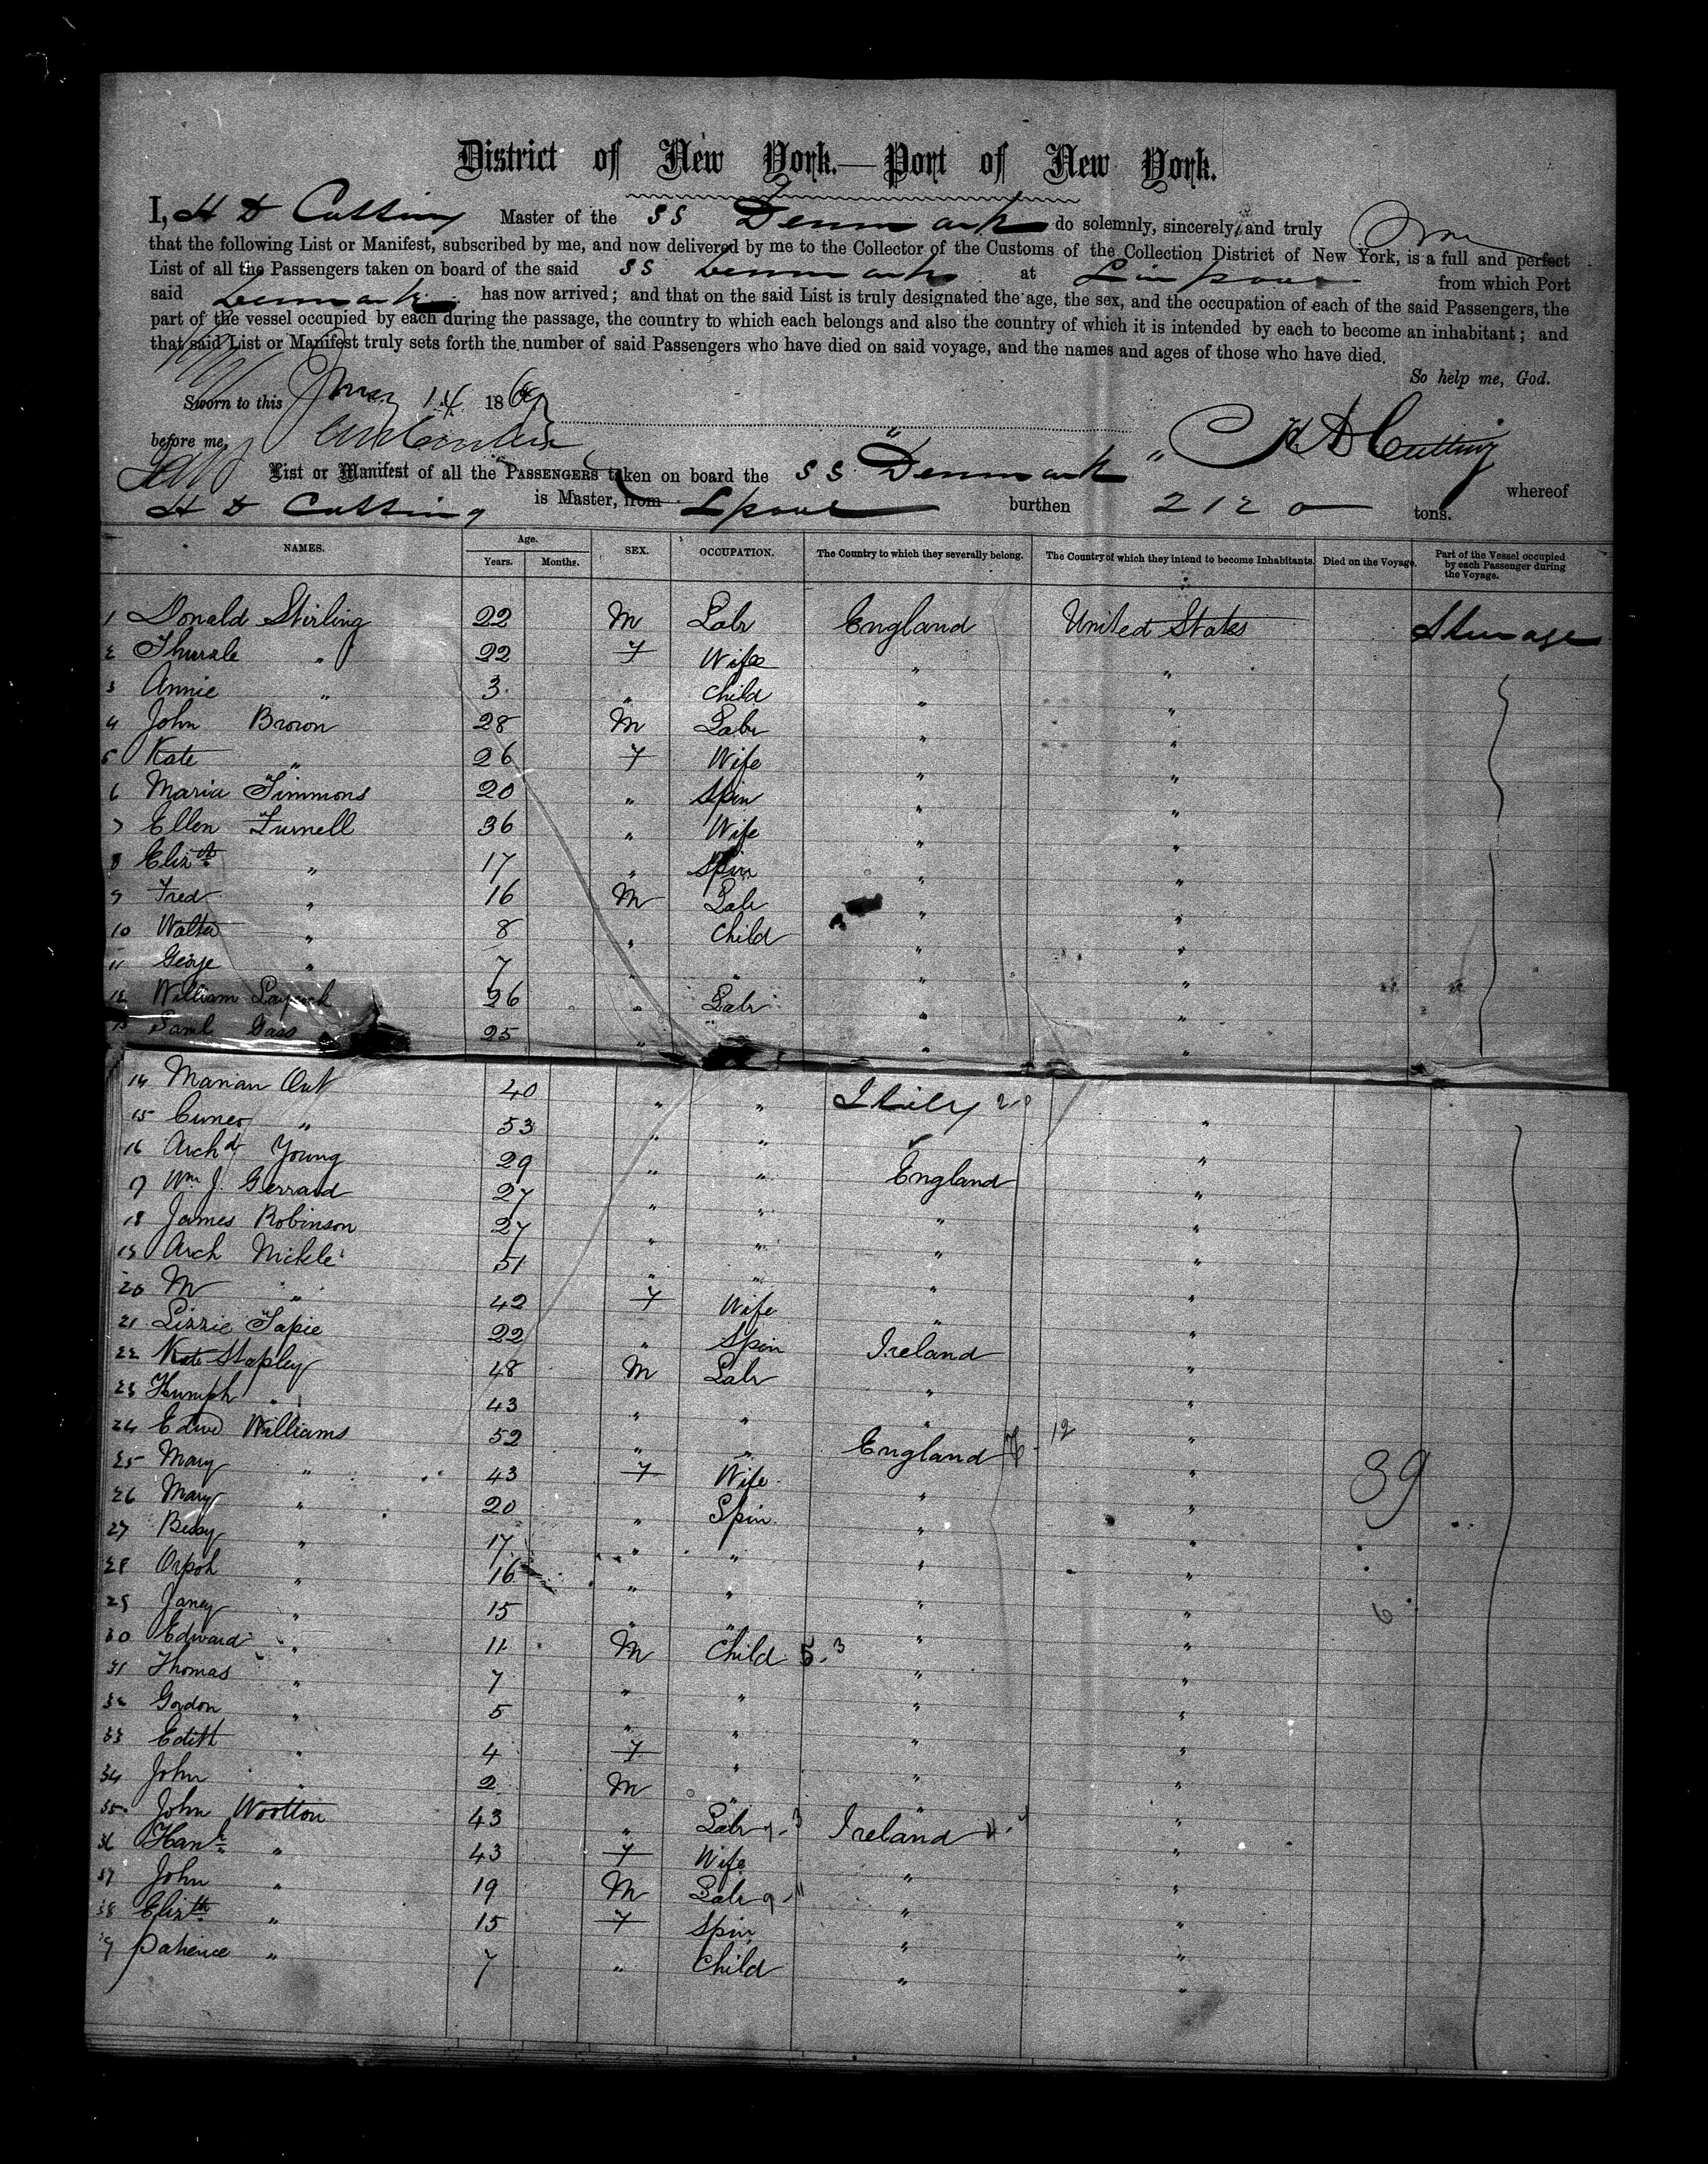 District of New York.—Port of New York.
I, H D Cutting Master of the SS Denmark do solemnly, sincerely, and truly
that the following List or Manifest, subscribed by me, and now delivered by me to the Collector of the Customs of the Collection District of New York, is a full and perfect
List of all the Passengers taken on board of the said SS Denmark at Liverpool from which Port
said Denmark has now arrived; and that on the said List is truly designated the age, the sex, and the occupation of each of the said Passengers, the
part of the vessel occupied by each during the passage, the country to which each belongs and also the country of which it is intended by each to become an inhabitant; and
that said List or Manifest truly sets forth the number of said Passengers who have died on said voyage, and the names and ages of those who have died.
So help me, God.
Sworn to this 14 186
before me, H D Cutting
List or Manifest of all the PASSENGERS taken on board the SS "Denmark" whereof
H D Cutting is Master, from Lpool burthen 2120 tons.
NAMES. Age. Years. Months. SEX. OCCUPATION. The Country to which they severally belong. The Country of which they intend to become Inhabitants. Died on the Voyage. Part of the Vessel occupied by each Passenger during the Voyage.
1 Donald Stirling 22 M Labr England United States Steerage
2 " 22 F Wife " "
3 Annie " 3 " Child " "
4 John Brown 28 M Labr " "
5 Kate " 26 F Wife " "
6 Maria Timmons 20 " Spin " "
7 Ellen Furnell 36 " Wife " "
8 Elizth " 17 " Spin " "
9 Fred " 16 M Labr " "
10 Walter " 8 " Child " "
11 George " 7 " " " "
12 William 26 " Labr " "
13 Saml Gass 25 " " " "
14 Marian Out 40 " " Italy "
15 Cuneo " 53 " " " "
16 Archd Young 29 " " England "
17 Wm J. Gerrard 27 " " " "
18 James Robinson 27 " " " "
19 Arch Nickle 51 " " " "
20 M " 42 F Wife " "
21 Lizzie Tapie 22 " Spin Ireland "
22 Kate Stapley 48 M Labr " "
23 Humph " 43 " " " "
24 Edwd Williams 52 " " England 12 "
25 Mary " 43 F Wife " " 39
26 Mary " 20 " Spin " "
27 Bessy " 17 " " " "
28 Orpah " 16 " " " "
29 Janey " 15 " " " " 6
30 Edward " 11 M Child 5-3 " "
31 Thomas " 7 " " " "
32 Gordon " 5 " " " "
33 Edith " 4 F " " "
34 John " 2 M " " "
35 John Wootton 43 " Labr Ireland "
36 Hanh " 43 F Wife " "
37 John " 19 M Labr " "
38 Elizth " 15 F Spin " "
39 Patience " 7 " Child " "